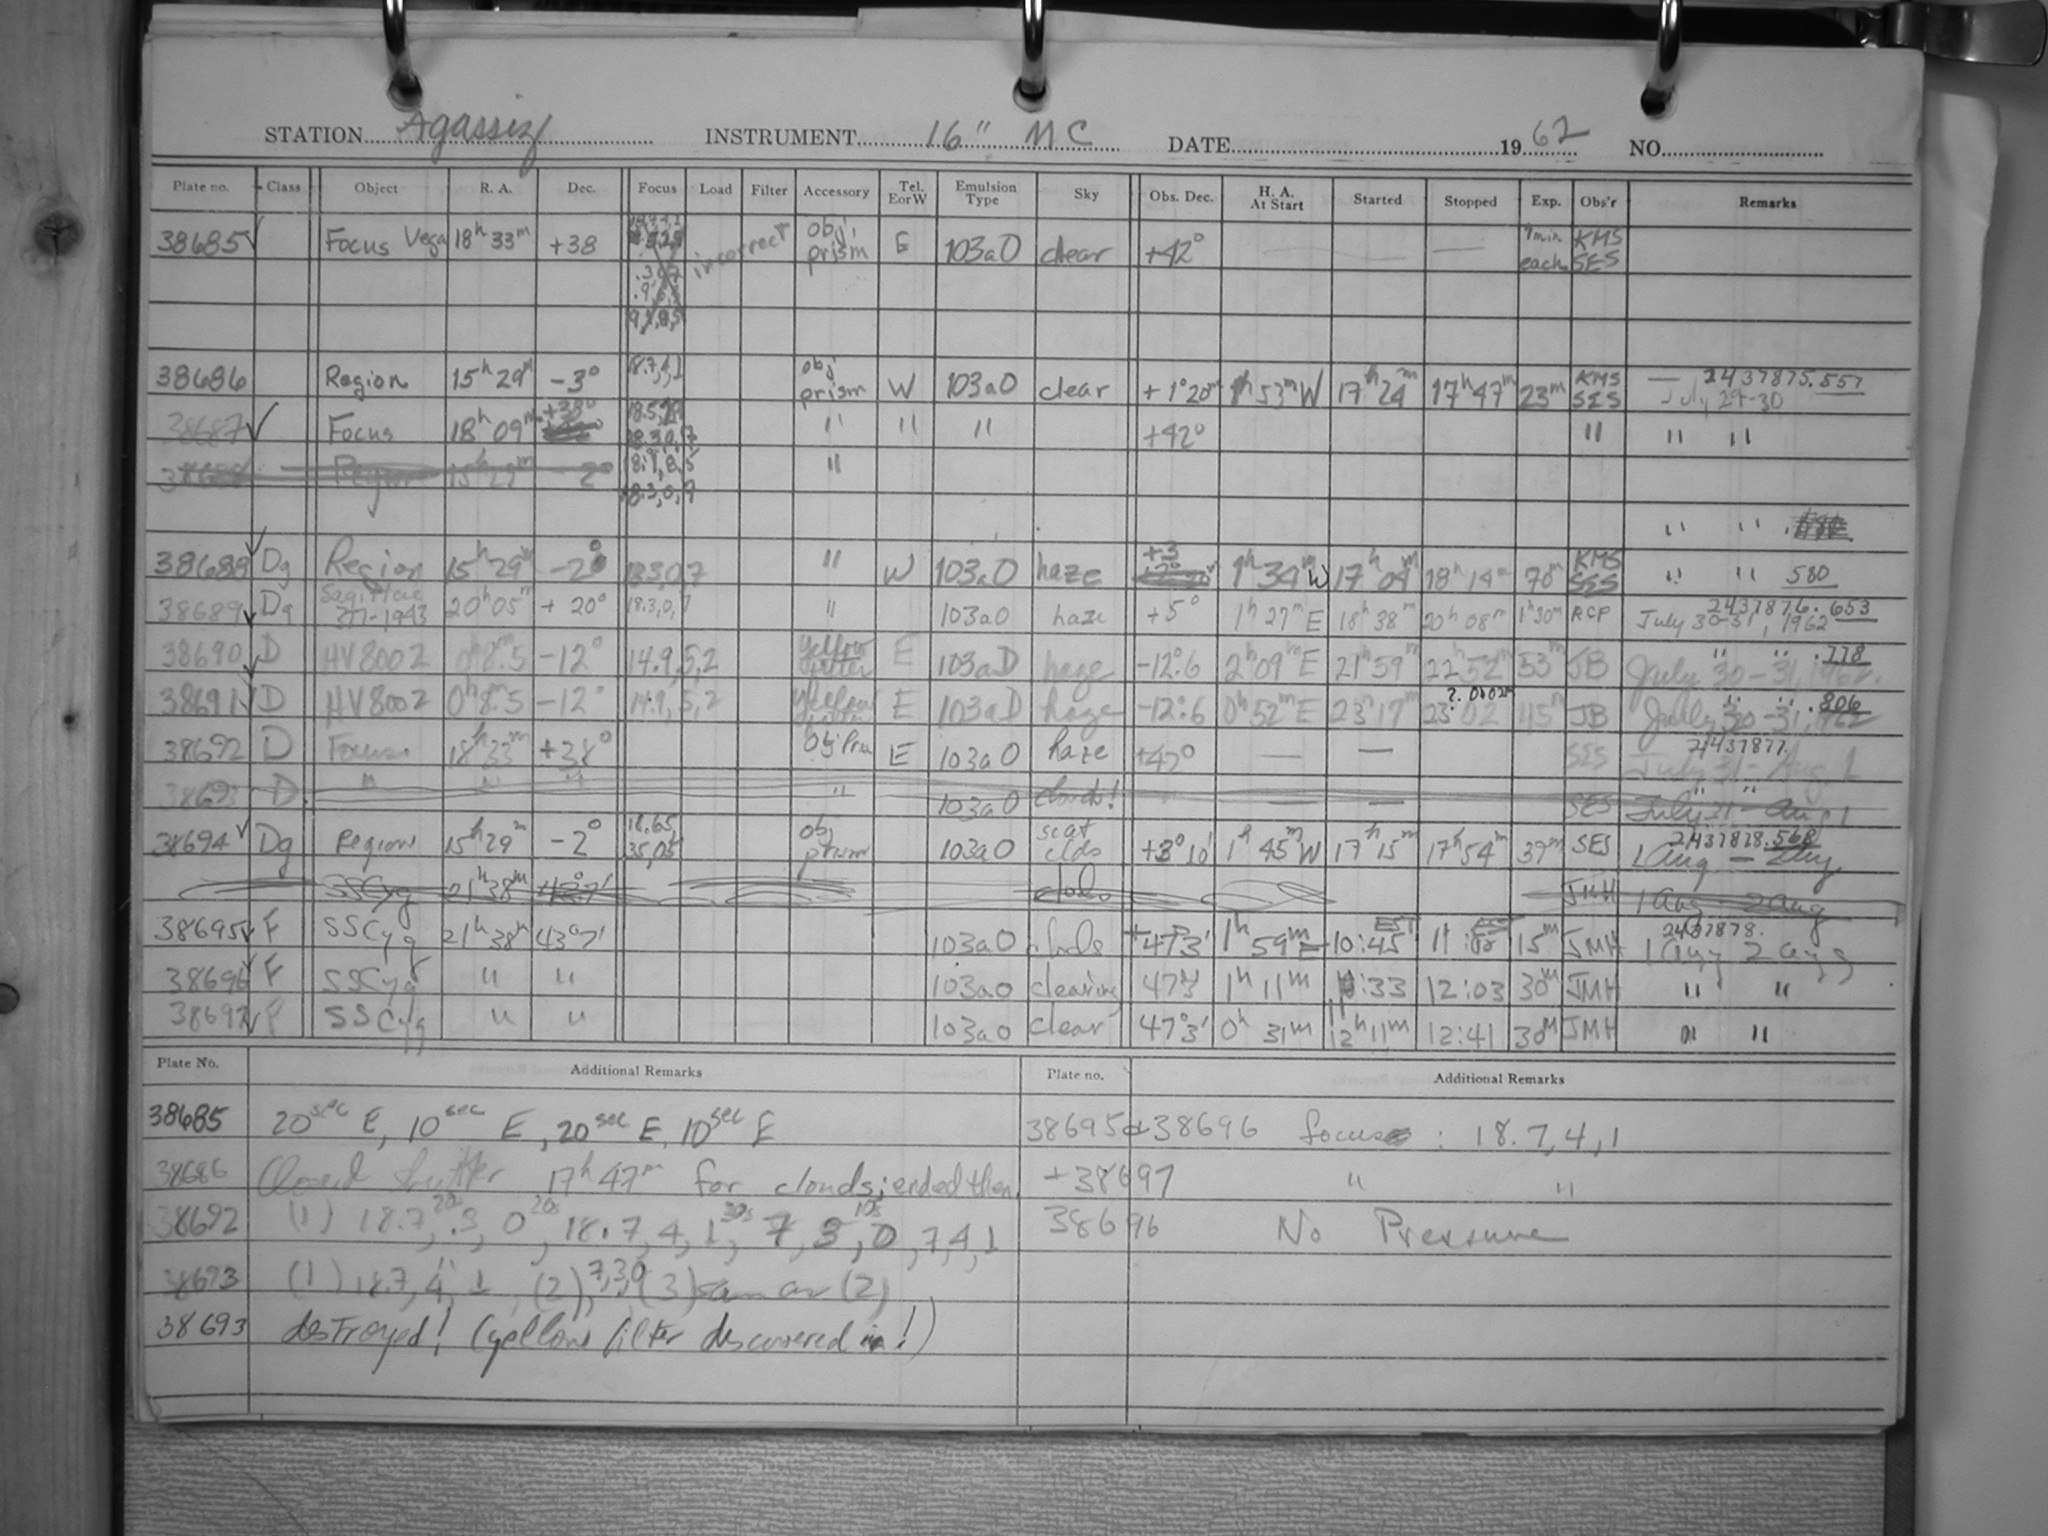 STATION Agassiz INSTRUMENT 16" MC DATE 1962 NO.
Plate no. Class Object R. A. Dec. Focus Load Filter Accessory Tel. E or W Emulsion Type Sky Obs. Dec. H. A. At Start Started Stopped Exp. Obs'r Remarks
38685 ✓ Focus Vega 18h 33m +38 incorrect obj. prism E 103aO clear +42° — — each KMS SES
38686 Region 15h 29m -3° 18.7,4,1 obj prism W 103aO clear +1°20m 1h 53m W 17h 24m 17h 47m 23m KMS SES — 2437875.557 July 29-30
38687 ✓ Focus 18h 09m +38° 18.30,7 " " " +42° " " "
Region 15h 29m -2° 18.3,0,9 "
" "
38688 ✓ Dg Region 15h 29m -2° 18.30,7 " W 103aO haze +3 1h 34m W 17h 04m 18h 14m 70m KMS SES " " 580
38689 ✓ Dg Sagittae 377-1943 20h 05m +20° 18.3,0,7 " 103aO haze +5° 1h 27m E 18h 38m 20h 08m 1h30m RCP 2437876.653 July 30-31, 1962
38690 ✓ D HV8002 0h 8m.5 -12° 14.9,5,2 yellow filter E 103aD haze -12°.6 2h 09m E 21h 59m 22h 52m 53m JB " " .778 July 30-31, 1962
38691 ✓ D HV8002 0h 8m.5 -12° 14.9,5,2 yellow filter E 103aD haze -12°.6 0h 52m E 23h 17m 23h 02 45m JB " " .806 July 30-31, 1962
38692 D Focus 18h 33m +38° Obj Prm E 103aO haze +42° — — SES 2437877. July 31-Aug. 1
38693 D " " " " 103aO clouds! — — SES " " July 31-Aug 1
38694 ✓ Dg Region 15h 29m -2° 18.65 35,05 obj prism 103aO scat clds +3° 10' 1h 45m W 17h 15m 17h 54m 39m SES 2437878.568 1 Aug -
SSCyg 21h 38m 43°7' clods JMH 1 Aug - 2 Aug
38695 ✓ F SSCyg 21h 38m 43°7' 103aO clods +47°3' 1h 59m E 10:45 EST 11: 15m JMH 2437878. 1 Aug 2 Aug
38696 ✓ F SSCyg " " 103aO clearing 47°3' 1h 11m 11:33 12:03 30m JMH " "
38697 ✓ F SSCyg " " 103aO clear 47°3' 0h 31m 12h 11m 12:41 30m JMH " "
Plate No. Additional Remarks Plate no. Additional Remarks
38685 20sec E, 10sec E, 20sec E, 10sec E 38695 & 38696 focus : 18.7,4,1
38686 Closed shutter 17h 47m for clouds; ended then. +38697 " "
38692 (1) 18.7, .3, 0 20s, 18.7,4,1 30s, 7,3,0 10s, 7,4,1 38696 No Pressure
38693 (1) 18.7, 4, 1, (2) 7,3,0 (3) same as (2)
38693 destroyed! (yellow filter discovered in!)